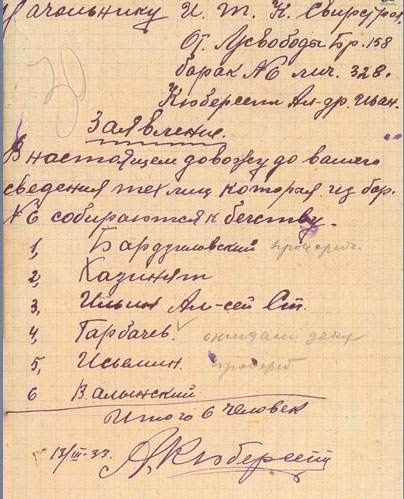 Начальнику И. Т. К. Свирьстрой,
От л/свободы Бр. 158
барак № 6 лич. 328.
Кюберсепп Ал-др. Иван.
30
Заявление.
В настоящем довожу до вашего
сведения тех лиц которая из бар.
№ 6 собираются к бегству.
1, Бардзиловский проверить
2, Казинят
3, Ильин Ал-сей Ст.
4, Гарбачев. ✓
5, Исьемин.
6 Валынский
Итого 6 человек
12/III-33. А. Кюберсепп